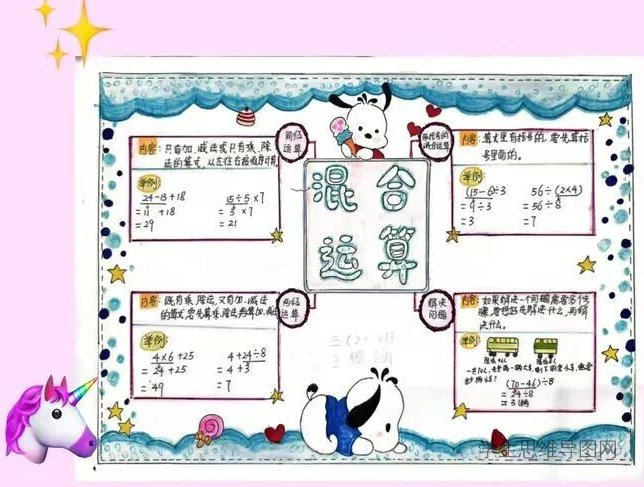 混合
运算
同级
运算
内容:只有加、减法或只有乘、除
法的算式,从左往右按顺序计算
举例:
24-13+18
=11+18
=29
15÷5×7
=3×7
=21
带括号的
混合运算
内容:算式里有括号的,要先算括
号里面的。
举例:
(15-6)÷3
=9÷3
=3
56÷(2×4)
=56÷8
=7
运算
内容:既有乘、除法,又有加、减法
的算式,要先算乘、除法,再算加、减法
举例:
4×6+25
=24+25
=49
4+24÷8
=4+3
=7
解决
问题
内容:如果解决一个问题需要多个步
骤,要想好先解决什么,再解
决什么。
举例:
(70-46)÷8
=24÷8
=3(辆)
二(2)
学生思维导图网